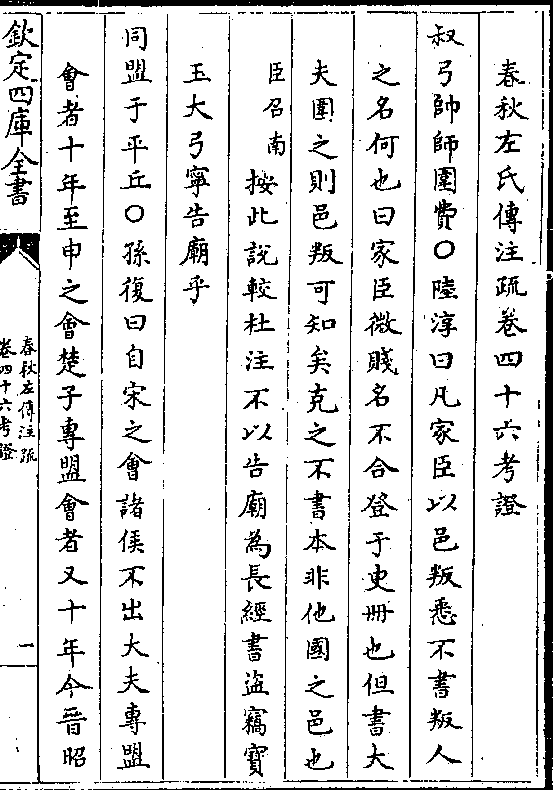 春秋左氏傳注疏卷四十六考證
叔弓帥師圍費○陸淳曰凡家臣以邑叛悉不書叛人
之名何也曰家臣微賤名不合登于史冊也但書大
夫圍之則邑叛可知矣克之不書本非他國之邑也
臣召南按此說較杜注不以告廟為長經書盜竊寶
玉大弓寧告廟乎
同盟于平丘○孫復曰自宋之會諸侯不出大夫專盟
會者十年至申之會楚子專盟會者又十年今晉昭
欽定四庫全書
春秋左傳注疏
卷四十六考證
一